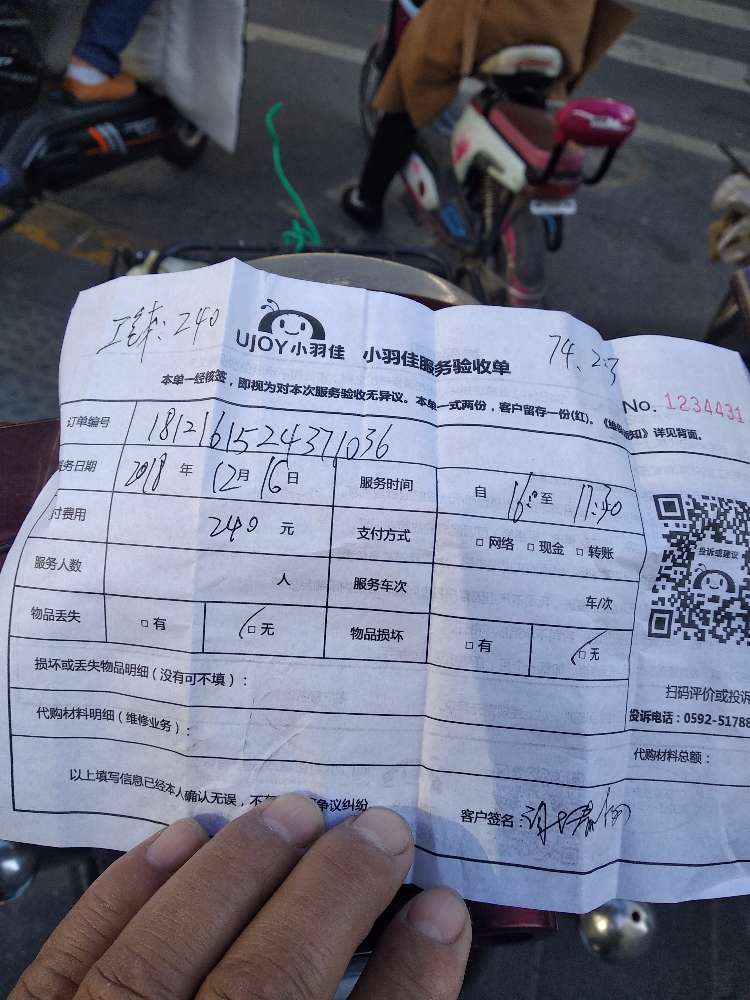 240
74.2:3
UJOY小羽佳 小羽佳服务验收单
No. 1234431
本单一经核签，即视为对本次服务验收无异议。本单一式两份，客户留存一份(红)。
知》详见背面。
订单编号 1812161524371036
务日期 2018 年 12月 16日 服务时间 自 16:0 至 17:30
付费用 240 元 支付方式 □ 网络 □ 现金 □ 转账
投诉或建议
服务人数 人 服务车次 车/次
物品丢失 □ 有 □ 无 物品损坏 □ 有 □ 无
损坏或丢失物品明细（没有可不填）：
扫码评价或投诉
代购材料明细（维修业务）：
投诉电话：0592-51788
代购材料总额：
以上填写信息已经本人确认无误，不 争议纠纷
客户签名：